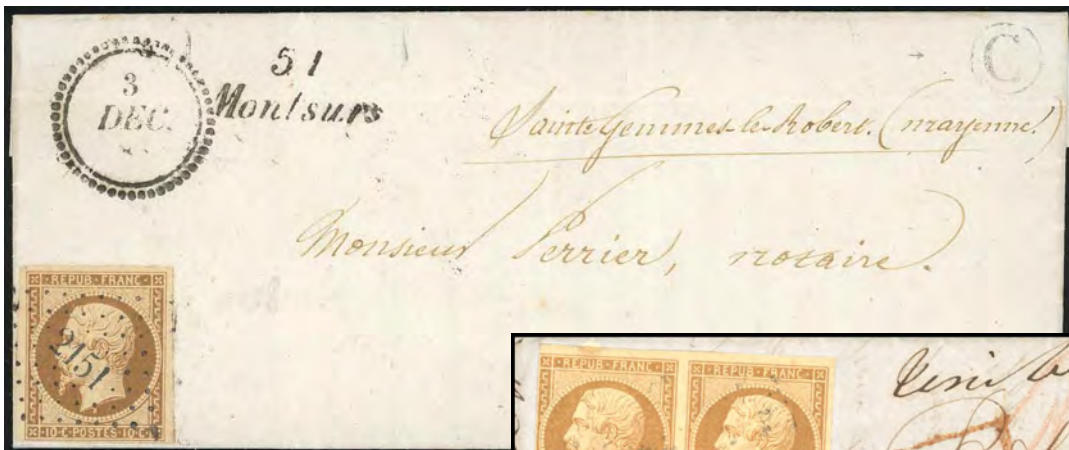 3
DEC.
51
Montsurs
C
Sainte Gemmes-le-Robert. (mayenne.)
Monsieur Perrier, notaire.
REPUB·FRANC·
2151
10·C·POSTES·10·C·
REPUB·FRANC·
REPUB·FRANC·